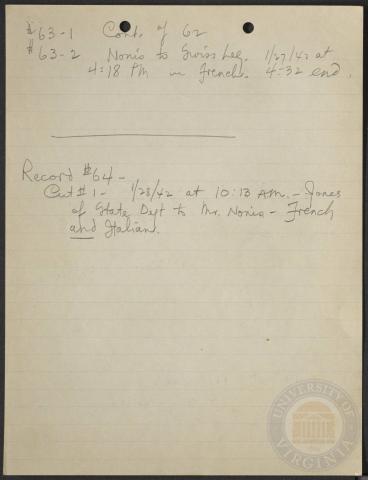 # 63-1 Cont. of 62
# 63-2 Nonis to Swiss Leg. 1/27/42 at
4:18 PM in French. 4:32 end.
Record #64-
Cut #1- 1/28/42 at 10:13 AM. - Jones
of State Dept to Mr. Nonis - French
and Italian.
UNIVERSITY OF VIRGINIA